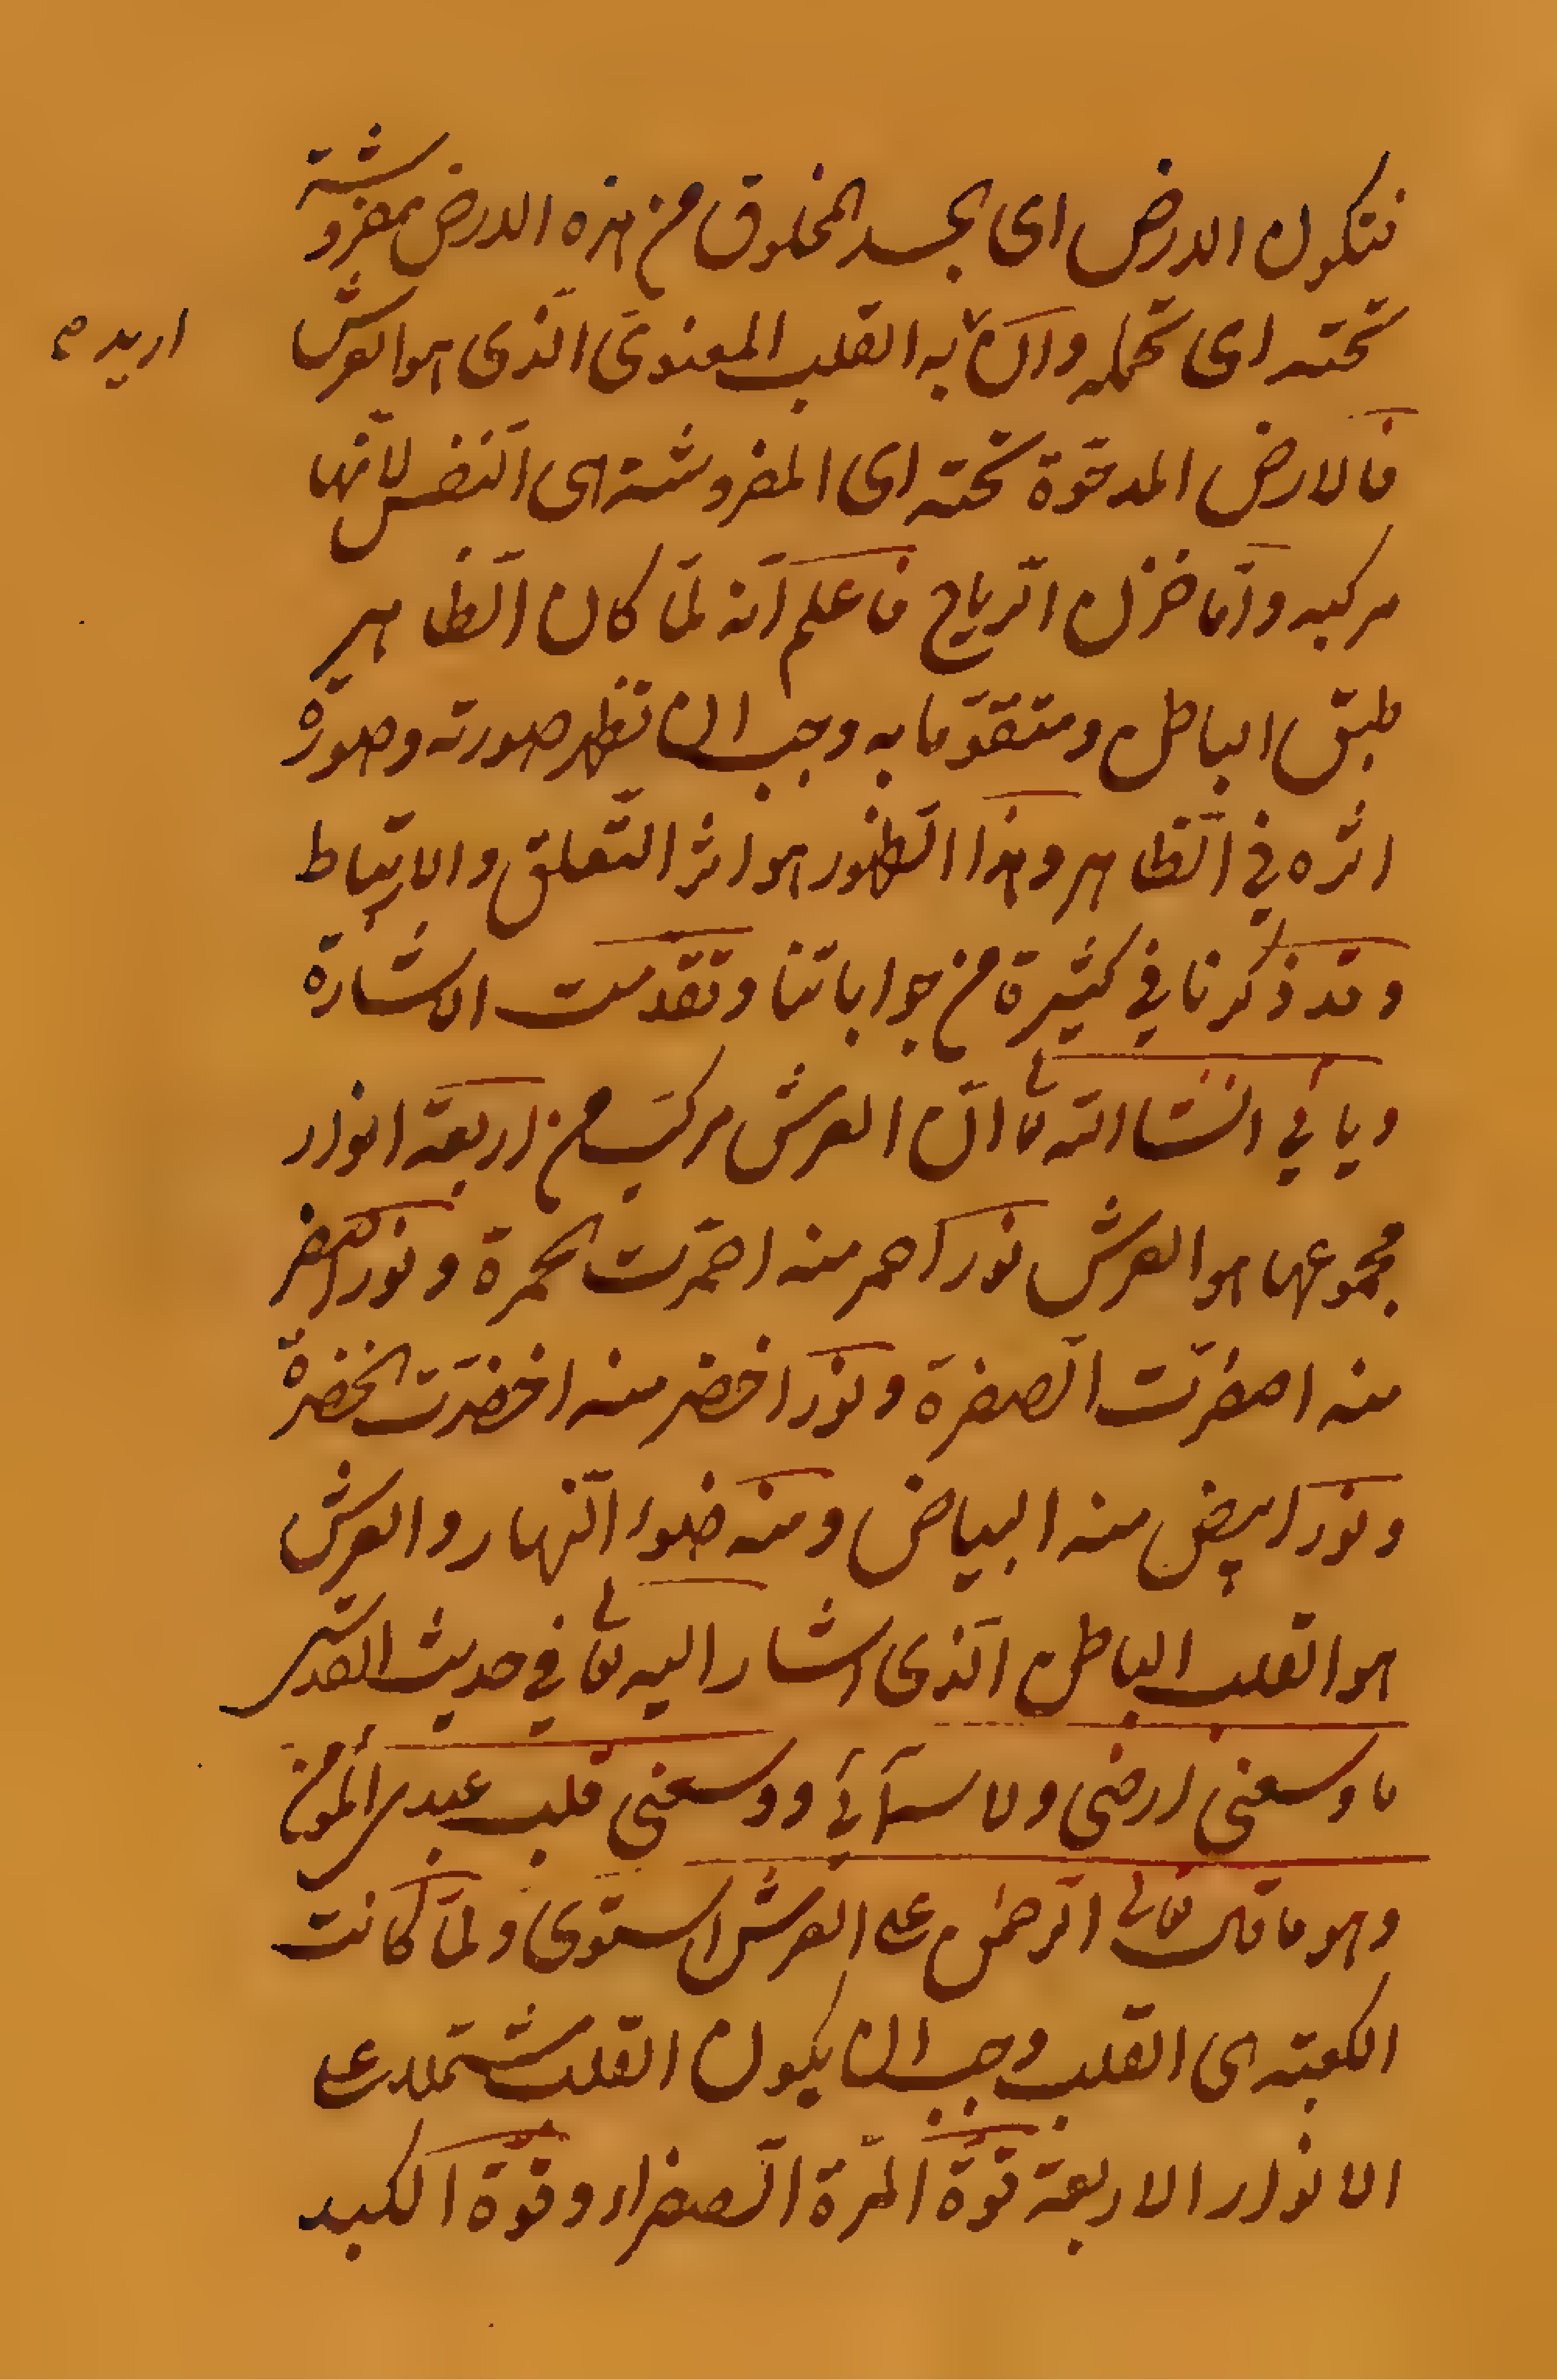 فتكون الارض اى الجسد المخلوق من هذه الارض مفروشة
تحته اى تحمله وان به القلب المعنوىّ الّذى هو العرش
اريد صح
فالارض المدحّوة تحته اى المفروشة اى النّفس لانّها
مركبه وامّا خزان الرّياح فاعلم انّه لمّا كان الظّاهر
طبق الباطن ومتقوّما به وجب ان تظهر صورته وصورة
اثره في الظّاهر وهذا الظّهور هو اثر التّعلق والارتباط
وقد ذكرنا في كثيرة من جواباتنا وتقدّمت الاشارة
ويأتي انشاالله تعا انّ العرش مركّب من اربعة انوار
مجموعها هو العرش نور احمر منه احمرّت الحمرة ونور اصفر
منه اصفرّت الصّفرة ونور اخضر منه اخضرّت الخضرة
ونور ابيض منه البياض ومنه ضوء النّهار والعرش
هو القلب الباطن الّذى اشار اليه تعا في حديث القدسى
ما وسعنى ارضى ولا سمآئي ووسعنى قلب عبدى المؤمن
وهو ما قال تعالى الرّحمٰن على العرش استوى ولمّا كانت
الكعبة هى القلب وجب ان يكون القلب مشتملا على
الانوار الاربعة قوّة المرّة الصّفراء وقوّة الكبد